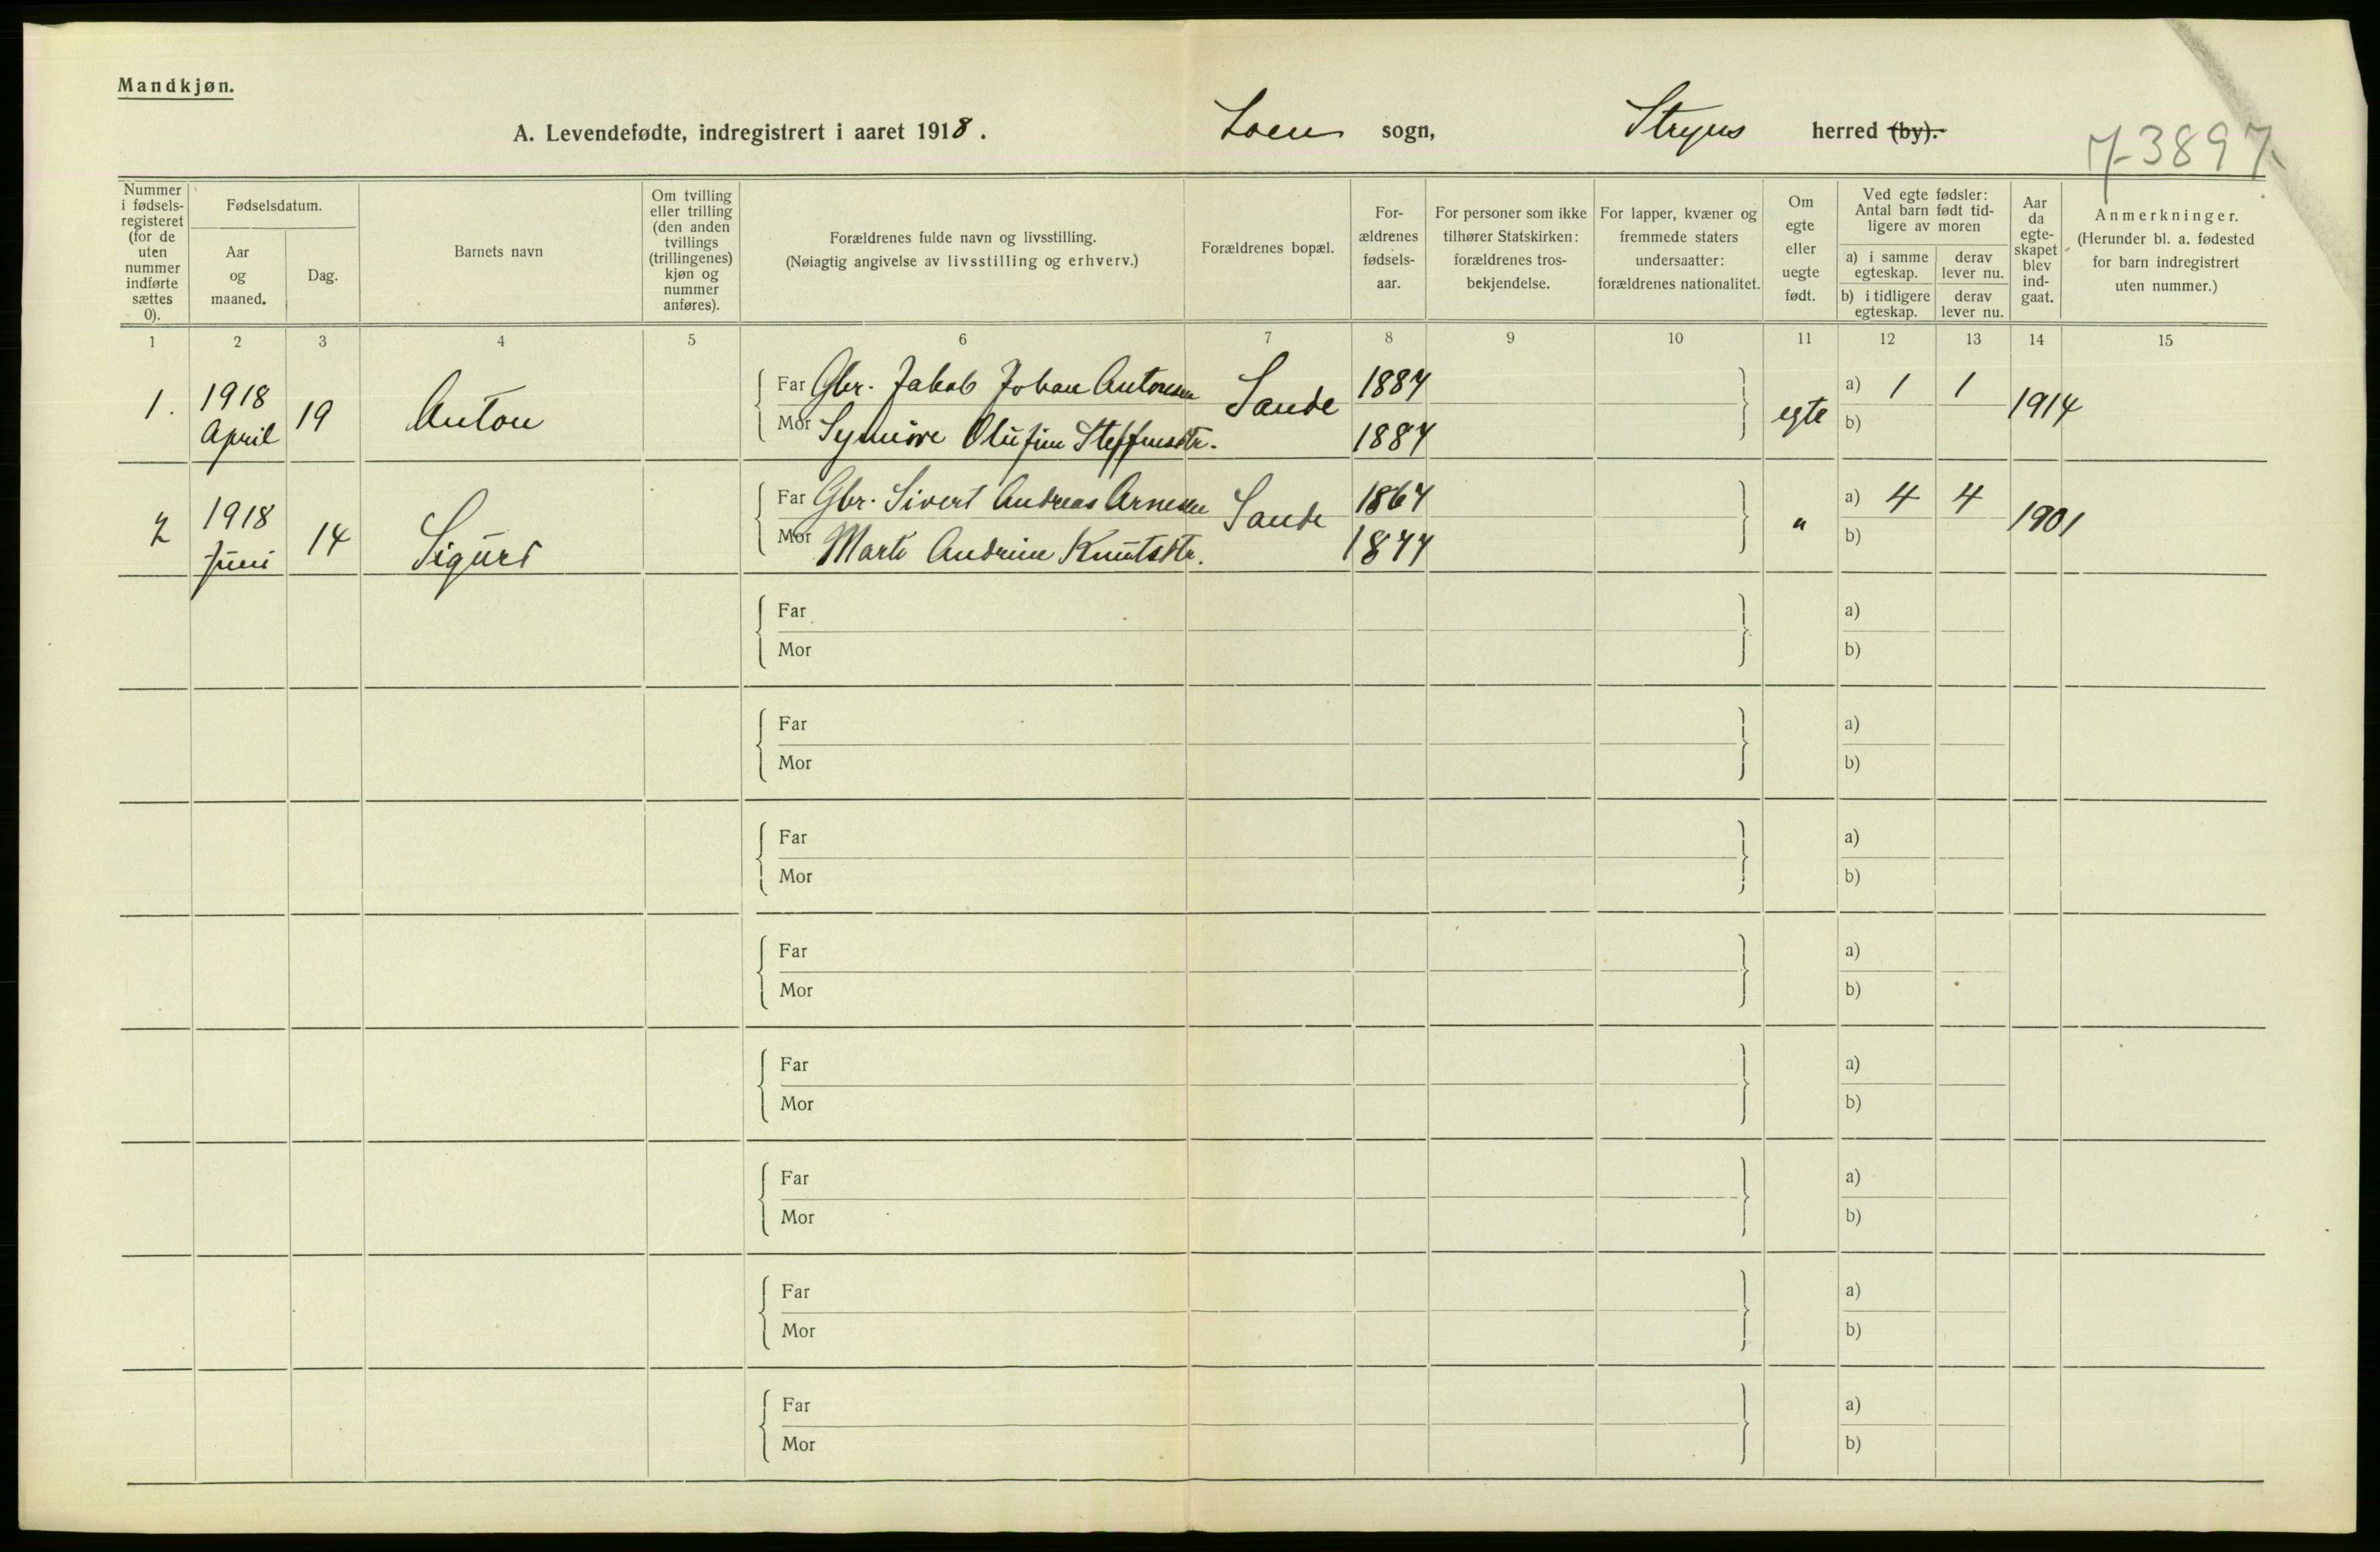 Mandkjøn.
A. Levendefødte, indregistrert i aaret 1918. Loen sogn, Stryns herred (by).
7-3897
Nummer i fødsels-registeret (for de uten nummer indførte sættes 0).
Fødselsdatum.
Aar og maaned.
Dag.
Barnets navn
Om tvilling eller trilling (den anden tvillings (trillingenes) kjøn og nummer anføres).
Forældrenes fulde navn og livsstilling.
(Nøiagtig angivelse av livsstilling og erhverv.)
Forældrenes bopæl.
For-ældrenes fødsels-aar.
For personer som ikke tilhører Statskirken: forældrenes tros-bekjendelse.
For lapper, kvæner og fremmede staters undersaatter: forældrenes nationalitet.
Om egte eller uegte født.
Ved egte fødsler: Antal barn født tid-ligere av moren
a) i samme egteskap.
derav lever nu.
b) i tidligere egteskap.
derav lever nu.
Aar da egte-skapet blev ind-gaat.
Anmerkninger.
(Herunder bl. a. fødested for barn indregistrert uten nummer.)
1 2 3 4 5 6 7 8 9 10 11 12 13 14 15
1. 1918 April 19 Anton
Far Gbr. Jakob Johan Antonsen Sande 1887 egte a) 1 1 1914
Mor Synnöve Olufine Steffensdtr. 1887 b)
2 1918 Juni 14 Sigurd
Far Gbr. Sivert Andreas Arnesen Sande 1867 " a) 4 4 1901
Mor Marte Andrine Knutsdtr. 1877 b)
Far a)
Mor b)
Far a)
Mor b)
Far a)
Mor b)
Far a)
Mor b)
Far a)
Mor b)
Far a)
Mor b)
Far a)
Mor b)
Far a)
Mor b)